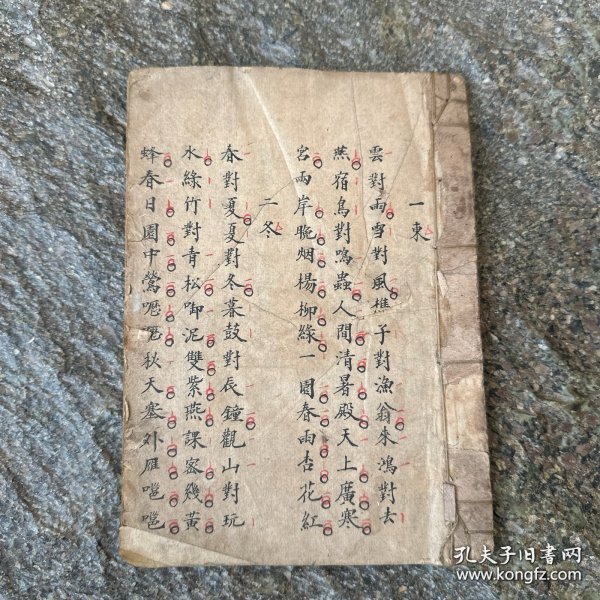 一東
雲對雨雪對風樵子對漁翁來鴻對去
燕宿鳥對鳴蟲人間清暑殿天上廣寒
宮兩岸晚烟楊柳綠一園春雨杏花紅
二冬
春對夏夏對冬暮鼓對辰鐘觀山對玩
水綠竹對青松啣泥雙紫燕課蜜幾黃
蜂春日園中鶯嚦嚦秋天塞外雁噰噰
孔夫子旧书网
www.kongfz.com